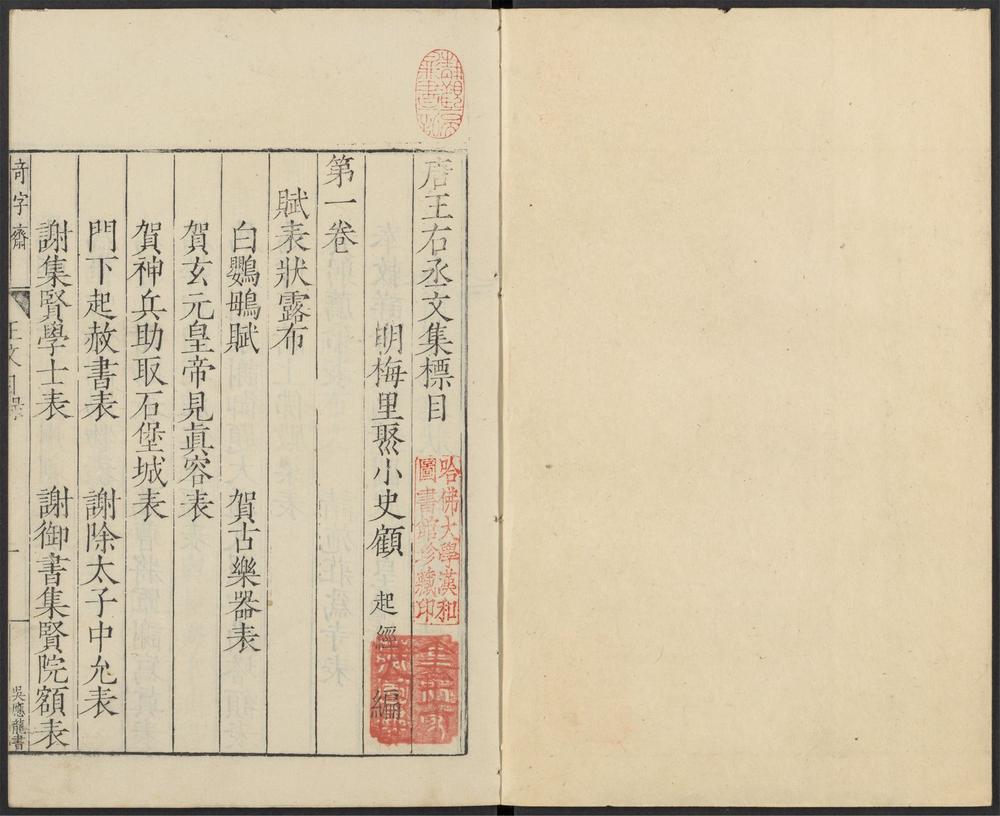 唐王右丞文集標目
明梅里聚小史顧起經編
第一卷
賦表狀露布
白鸚鵡賦 賀古樂器表
賀玄元皇帝見真容表
賀神兵助取石堡城表
門下起赦書表 謝除太子中允表
謝集賢學士表 謝御書集賢院額表
奇字齋 王文目錄 一 吳應龍書
哈佛大學漢和
圖書館珍藏印